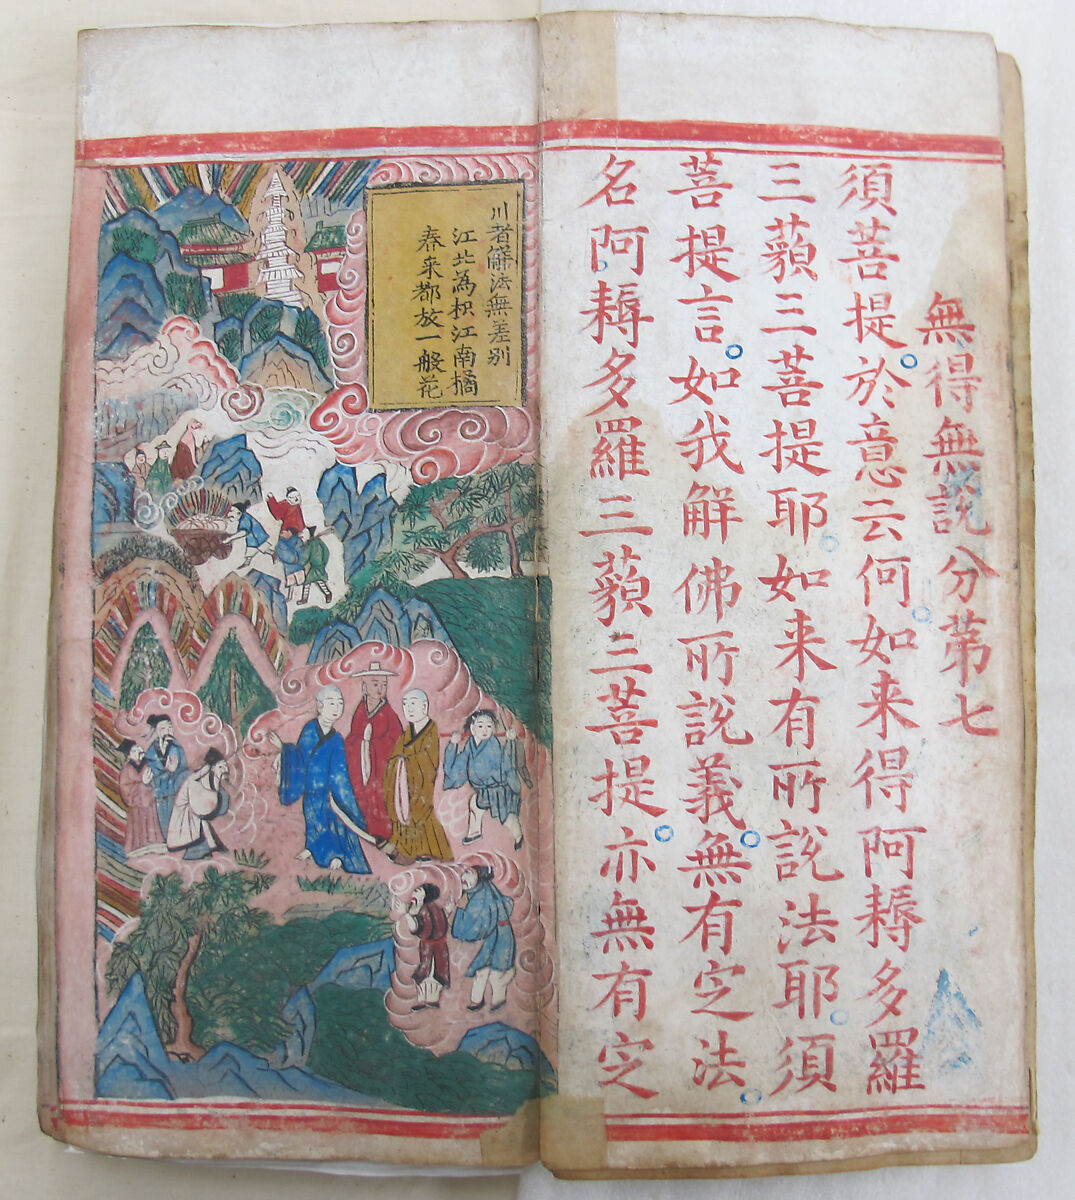 無得無說分苐七
須菩提。於意云何。如来得阿耨多羅
三藐三菩提耶。如来有所說法耶。須
菩提言。如我觧佛所說義。無有㝎法。
名阿耨多羅三藐三菩提。亦無有㝎
川者觧法無差别
江北為枳江南橘
春来都放一般花